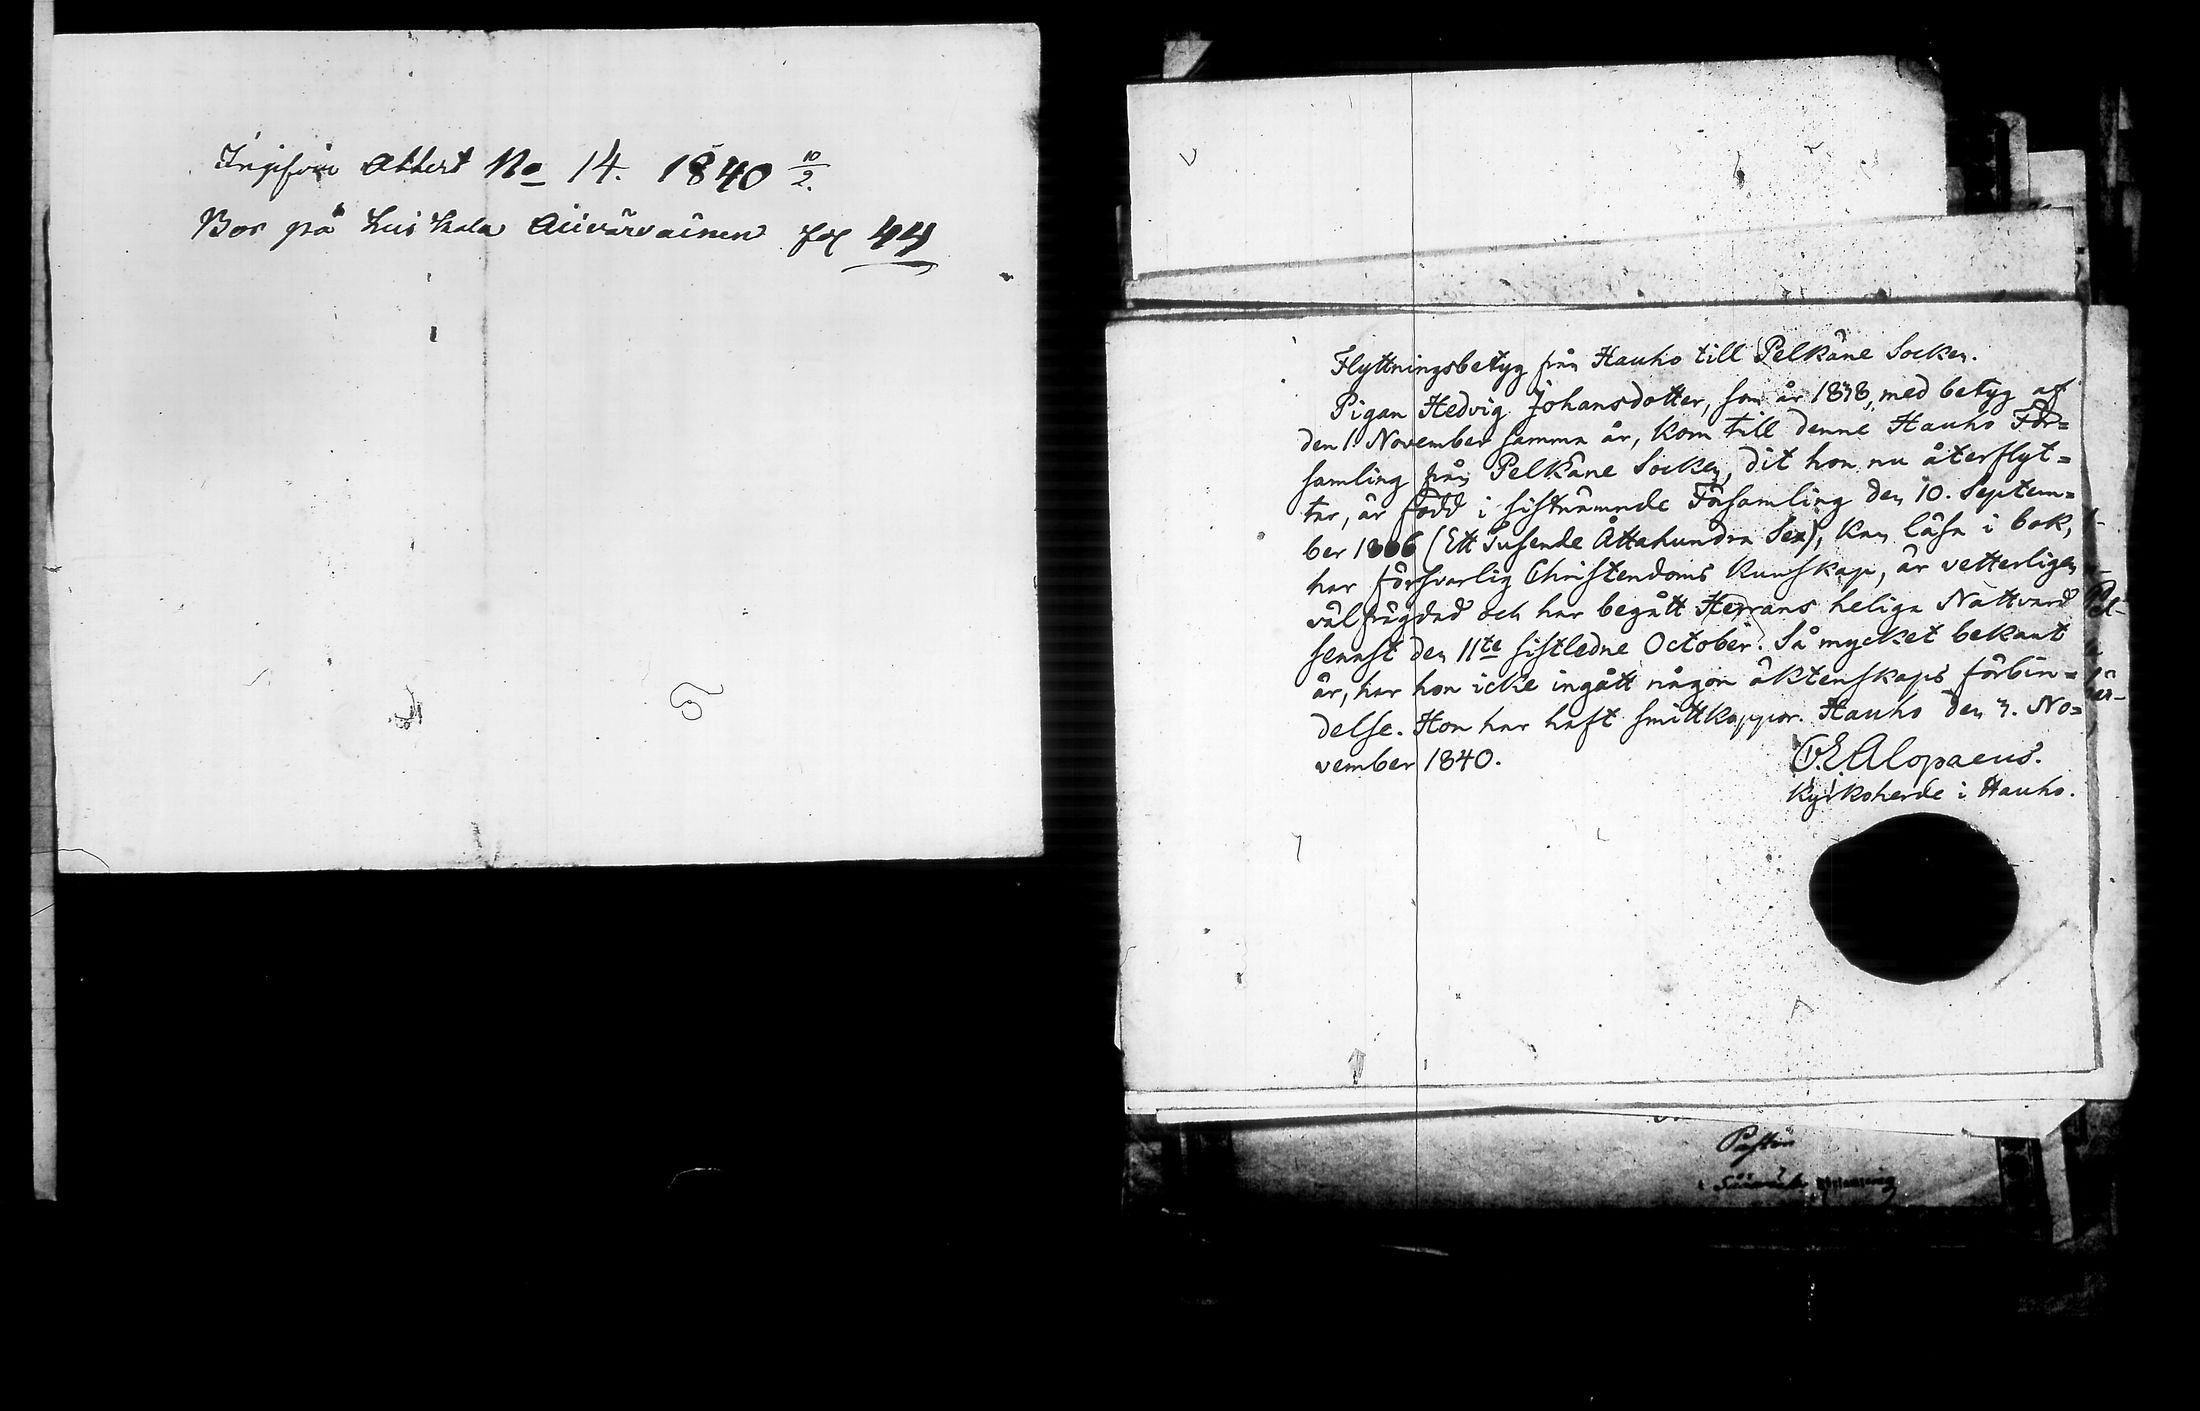 Attest No 14. 1840 10/2.
Bor på fol 44
Flyttningsbetyg från Hauho till Pelkäne Socken.
Pigan Hedvig Johansdotter, som år 1838, med betyg af
den 1 November samma år, kom till denne Hauho För=
samling från Pelkäne Socken, dit hon nu återflyt=
tar, är född i sistnämnde Församling den 10. Septem=
ber 1806 (Ett Tusende Åttahundra Sex), kan läsa i bok,
har försvarlig Christendoms kunskap, är vetterligen
välfrägdad och har begått Herrans heliga Nattvard
sennst den 11te sistledne October. Så mycket bekant
är, har hon icke ingått någon äktenskaps förbin=
delse. Hon har haft smittkoppor. Hauho den 7. No=
vember 1840.
Alopaeus.
Kyrkoherde i Hauho.
Pastor